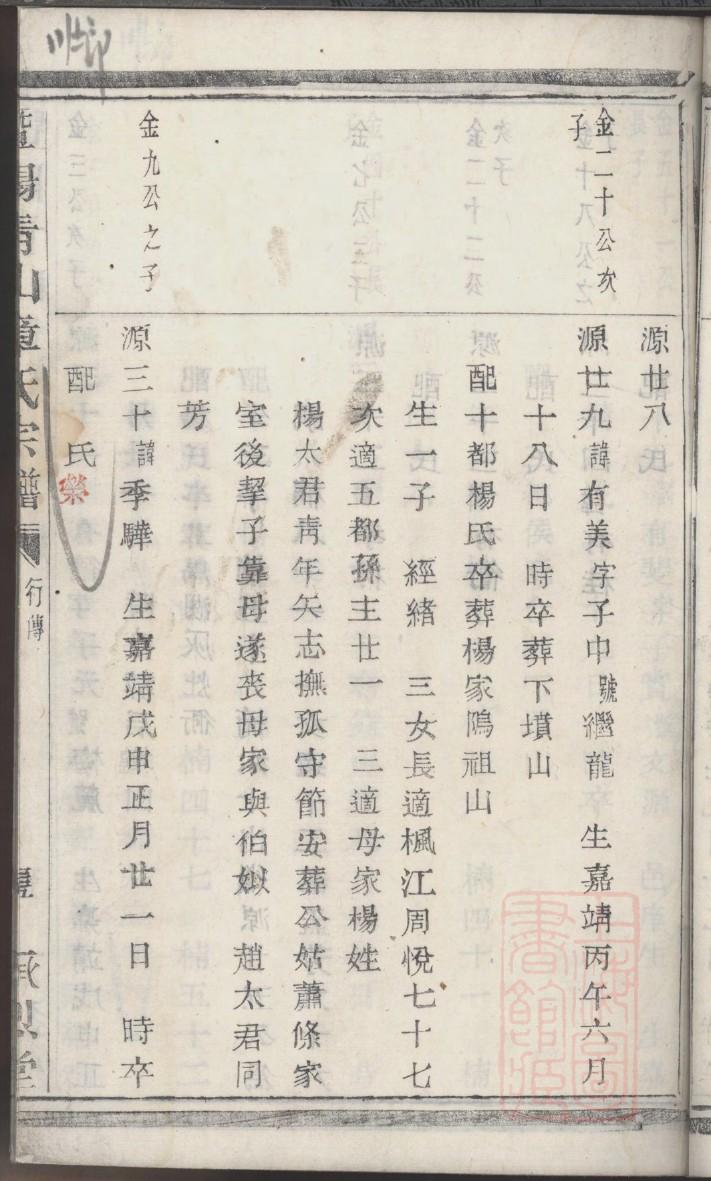 源廿八
金二十公次
子
源廿九諱有美字子中號繼龍 生嘉靖丙午六月
十八日 時卒葬下墳山
配十都楊氏卒葬楊家隖祖山
生一子 經緒 三女長適楓江周悅七十七
次適五都孫主廿一 三適母家楊姓
楊太君靑年矢志撫孤守節安葬公姑蕭條家
室後挈子靠母遂喪母家與伯姒 趙太君同
芳
金九公之子
源三十諱季驊 生嘉靖戊申正月廿一日 時卒
配 氏
暨陽靑山章氏宗譜
行傳
上海圖書館藏